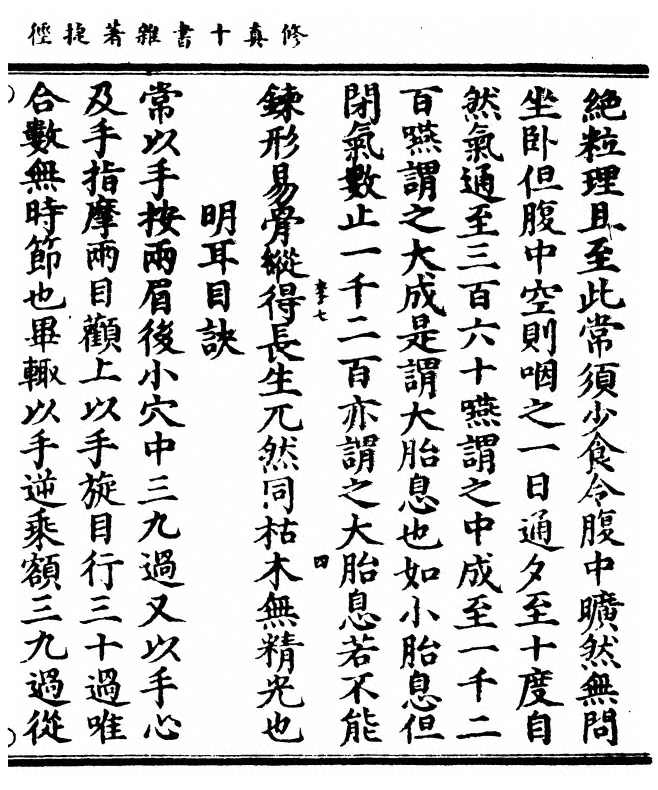 修真十書雜著捷徑
絕粒理且至此常須少食令腹中曠然無問
坐卧但腹中空則咽之一日通夕至十度自
然氣通至三百六十嚥謂之中成至一千二
百嚥謂之大成是謂大胎息也如小胎息但
閉氣數止一千二百亦謂之大胎息若不能
鍊形易骨縱得長生兀然同枯木無精光也
李七
四
明耳目訣
常以手按兩眉後小穴中三九過又以手心
及手指摩兩目顴上以手旋目行三十過唯
合數無時節也畢輙以手逆乘額三九過從